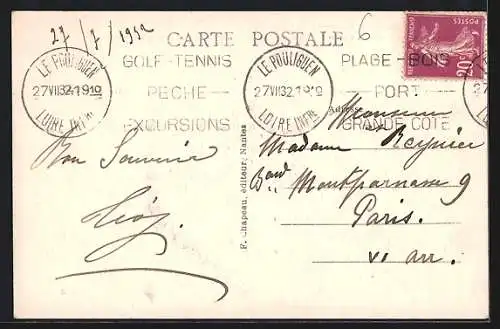 27/7/1932
6
CARTE POSTALE
LE POULIGUEN
27 VII 32.19 10
LOIRE INFRE
GOLF-TENNIS
PECHE
EXCURSIONS
LE POULIGUEN
27 VII 32.19 10
LOIRE INFRE
PLAGE-BOIS
PORT
GRANDE COTE
POSTES
20c
27
Adresse
Monsieur
Madame Reynier
Bard Montparnasse 9
Paris.
VI arr.
Bon Souvenir
F. Chapeau, éditeur, Nantes